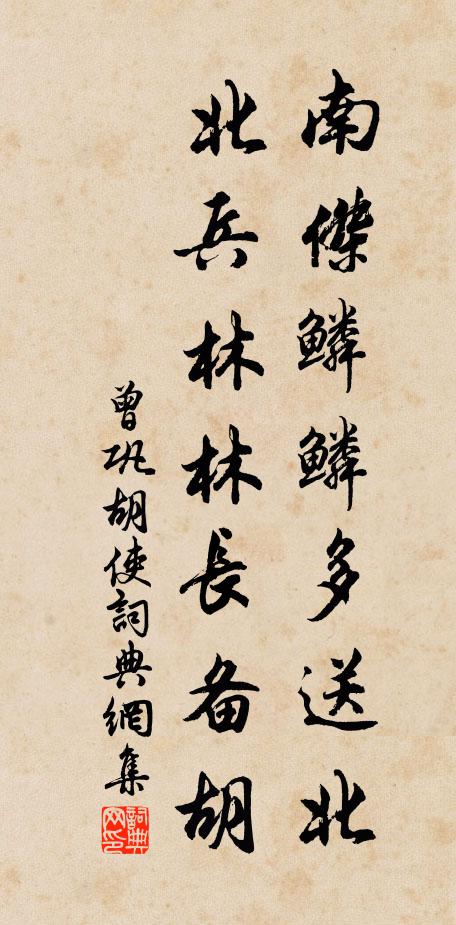 南傑鱗鱗多送北
北兵林林長备胡
曾巩胡使詞典網集
詞典网印